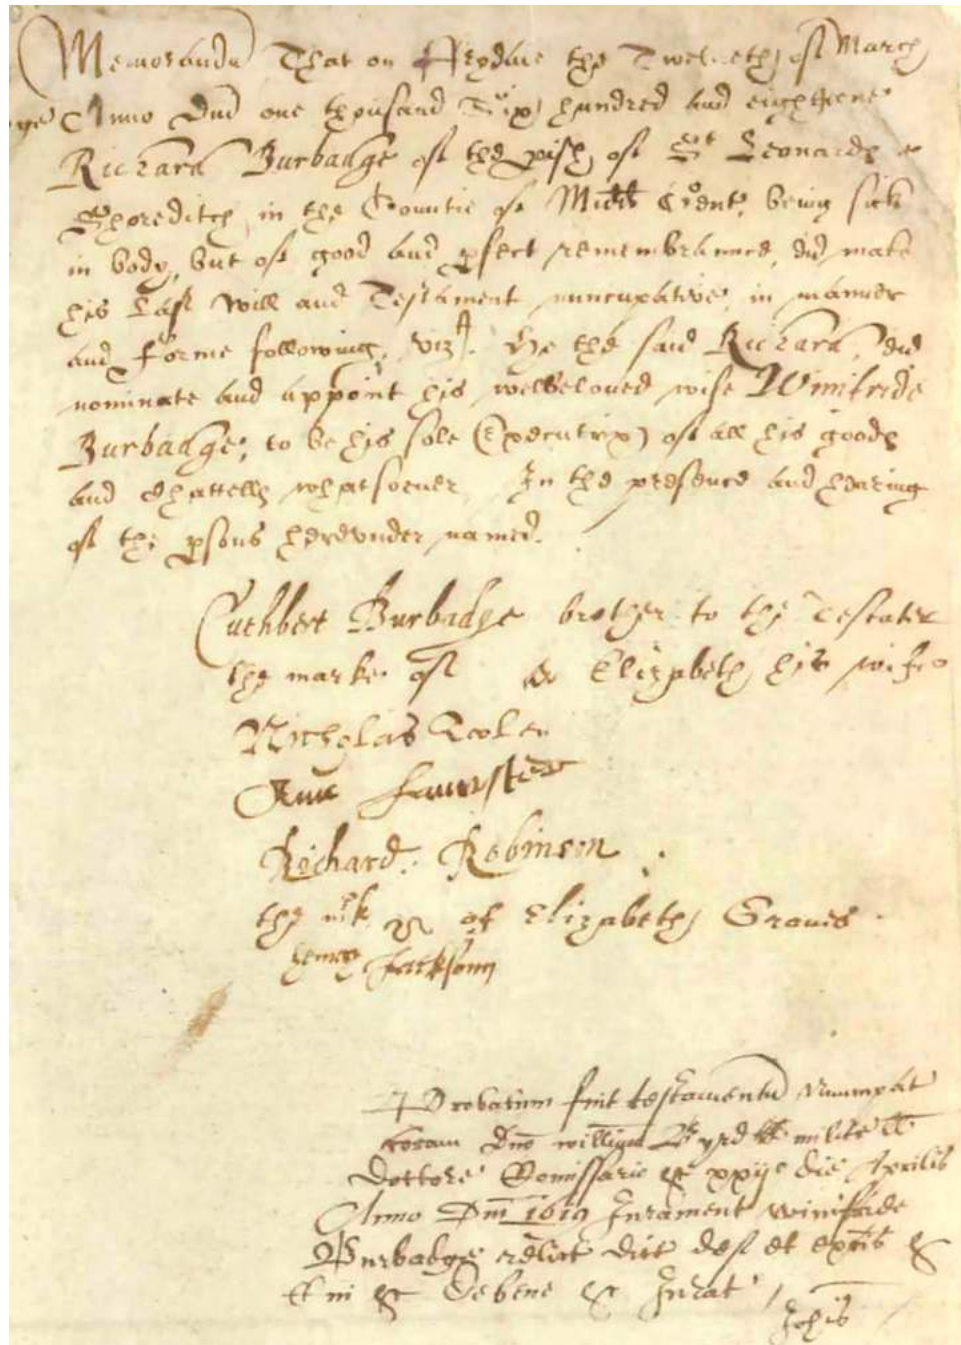 Memorandu That on Frydaie the Twelveth of March
Anno Dnd one thousand Six hundred and eighteene
Richard Burbadge of the pish of St Leonards
Shoreditch in the Countie of Midd Gent, being sick
in body, but of good and pfect remembrannce, did make
his Last Will and Testament nuncupative, in manner
and forme following, vizt. He the said Richard, did
nominate and appoint his welbeloued wife Winifride
Burbadge, to be his sole Executrix of all his goods
and Chattells whatsoeuer In the presence and hearing
of the psons herevnder named.
Cuthbert Burbadge brother to the Testator
the marke of Elizabeth his wife
Nicholas Tooley
Ann Lancster
Richard. Robinson
the mk of Elizabeth Graues
henry Jacksonn
Probatum fuit testamentu nuncupat
coram Dno willimo Byrd milite
Doctore Comissario &c xxijo die Aprilis
Anno Dni 1619 Jurament Winifride
Burbadge relicte dict def et exris &c
&c De bene &c Jurat
Johis